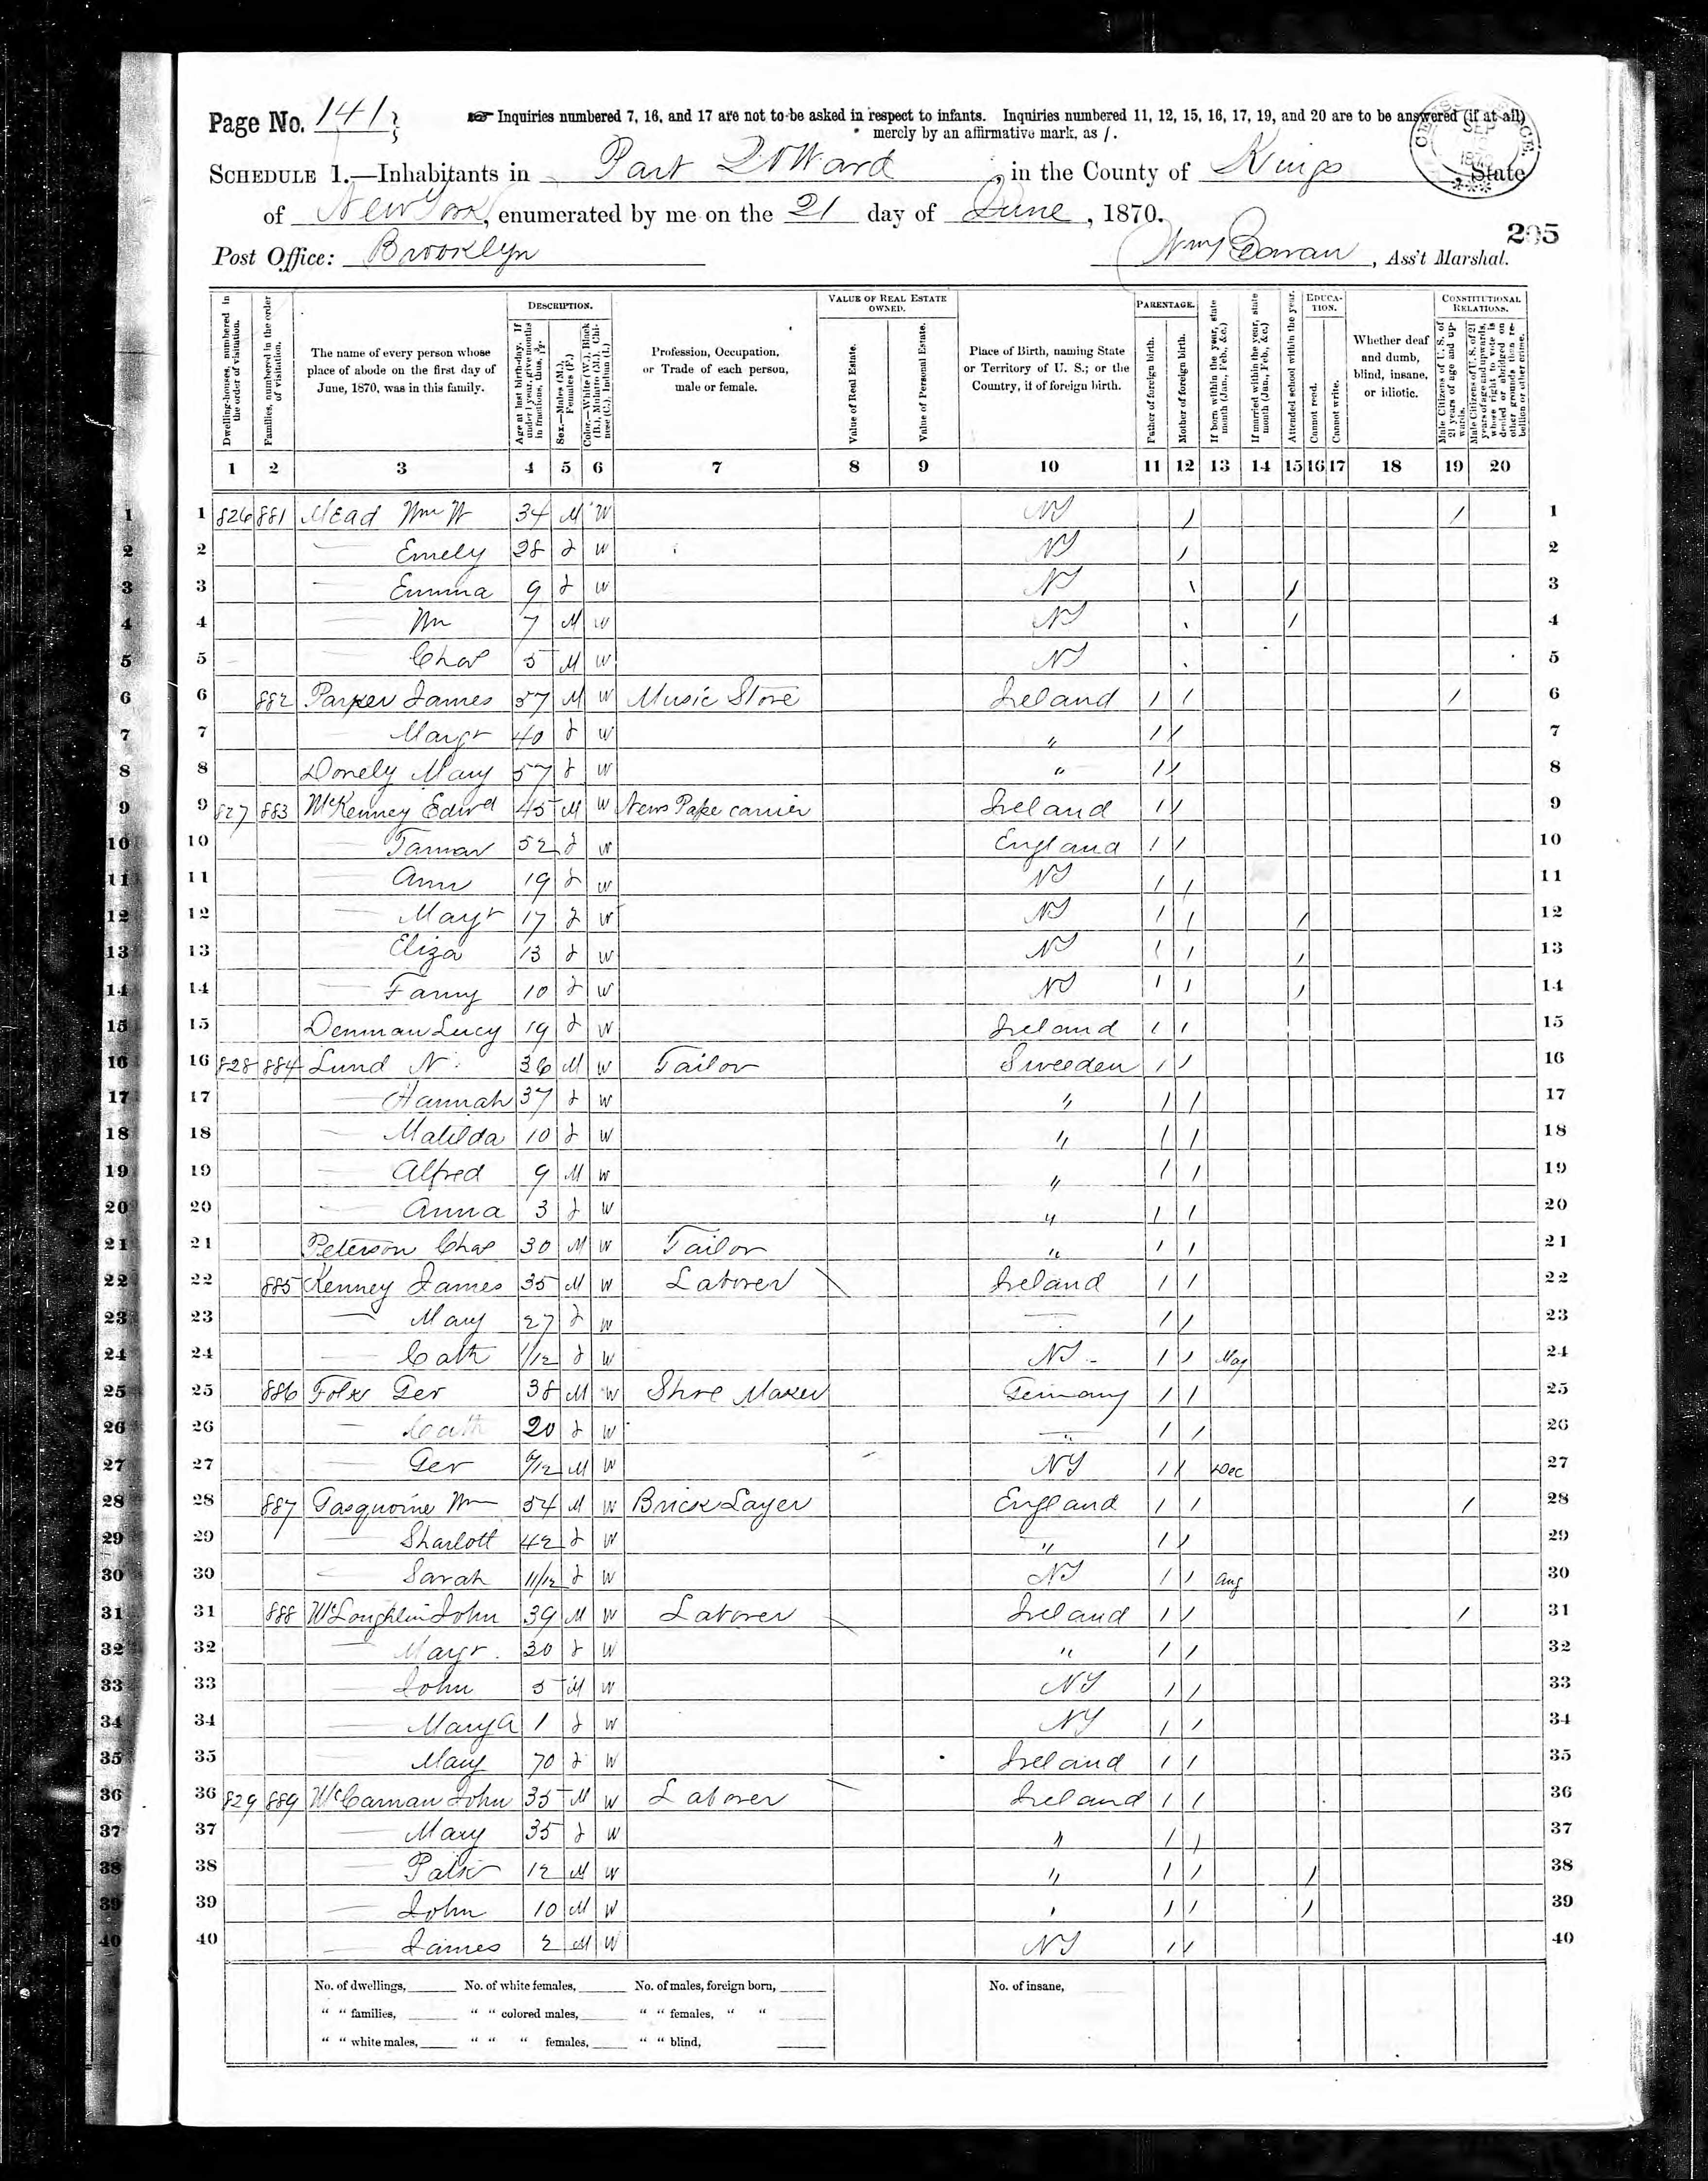 Page No. 141
Inquiries numbered 7, 16, and 17 are not to be asked in respect to infants. Inquiries numbered 11, 12, 15, 16, 17, 19, and 20 are to be answered (if at all)
merely by an affirmative mark, as /.
SCHEDULE 1.—Inhabitants in Part Ward, in the County of Kings, State
of New York, enumerated by me on the 21 day of June, 1870.
205
Post Office: Brooklyn Wm, Ass't Marshal.
DESCRIPTION. VALUE OF REAL ESTATE OWNED. PARENTAGE. EDUCATION. CONSTITUTIONAL RELATIONS.
Dwelling-houses, numbered in the order of visitation.
Families, numbered in the order of visitation.
The name of every person whose place of abode on the first day of June, 1870, was in this family.
Age at last birth-day. If under 1 year, give months in fractions, thus, 3/12.
Sex.—Males (M.), Females (F.)
Color.—White (W.), Black (B.), Mulatto (M.), Chinese (C.), Indian (I.)
Profession, Occupation, or Trade of each person, male or female.
Value of Real Estate.
Value of Personal Estate.
Place of Birth, naming State or Territory of U. S.; or the Country, if of foreign birth.
Father of foreign birth.
Mother of foreign birth.
If born within the year, state month (Jan., Feb., &c.)
If married within the year, state month (Jan., Feb., &c.)
Attended school within the year.
Cannot read.
Cannot write.
Whether deaf and dumb, blind, insane, or idiotic.
Male Citizens of U. S. of 21 years of age and upwards.
Male Citizens of U. S. of 21 years of age and upwards, whose right to vote is denied or abridged on other grounds than rebellion or other crime.
1 2 3 4 5 6 7 8 9 10 11 12 13 14 15 16 17 18 19 20
1 826 881 Mead Wm W 34 M W NY / / 1
2 — Emely 28 F W NY / 2
3 — Emma 9 F W NY / / 3
4 — Wm 7 M W NY / / 4
5 — Chas 5 M W NY 5
6 882 Parker James 57 M W Music Store Ireland / / / 6
7 Margr 40 F W " / / 7
8 Donely Mary 57 F W " / / 8
9 827 883 McKenney Edwd 45 M W News Pape carrier Ireland / / 9
10 Tamar 52 F W England / / 10
11 — Ann 19 F W NY / / 11
12 — Margr 17 F W NY / / / 12
13 Eliza 13 F W NY / / / 13
14 — Fanny 10 F W NY / / / 14
15 Denman Lucy 19 F W Ireland / / 15
16 828 884 Lund N 36 M W Tailor Sweeden / / 16
17 — Hannah 37 F W " / / 17
18 — Matilda 10 F W " / / 18
19 — Alfred 9 M W " / / 19
20 — Anna 3 F W " / / 20
21 Peterson Chas 30 M W Tailor " / / 21
22 885 Kenney James 35 M W Laborer Ireland / / 22
23 — Mary 27 F W — / / 23
24 — Cath 1/12 F W NY / / May 24
25 886 Folk Ger 38 M W Shoe Maker Germany / / 25
26 — Cath 20 F W " / / 26
27 — Ger 6/12 M W NY / / Dec 27
28 887 Gasquoine Wm 54 M W Brick Layer England / / / 28
29 — Sharlott 42 F W " / / 29
30 — Sarah 11/12 F W NY / / Aug 30
31 888 McLoughlin John 39 M W Laborer Ireland / / / 31
32 — Margr 30 F W " / / 32
33 — John 5 M W NY / / 33
34 — Mary A 1 F W NY / / 34
35 — Mary 70 F W Ireland / / 35
36 829 889 McCarnan John 35 M W Laborer Ireland / / 36
37 — Mary 35 F W " / / 37
38 — Patk 12 M W " / / / 38
39 — John 10 M W " / / / 39
40 — James 2 M W NY / / 40
No. of dwellings, No. of white females, No. of males, foreign born, No. of insane,
" " families, " " colored males, " " females, " "
" " white males, " " " females, " " blind,